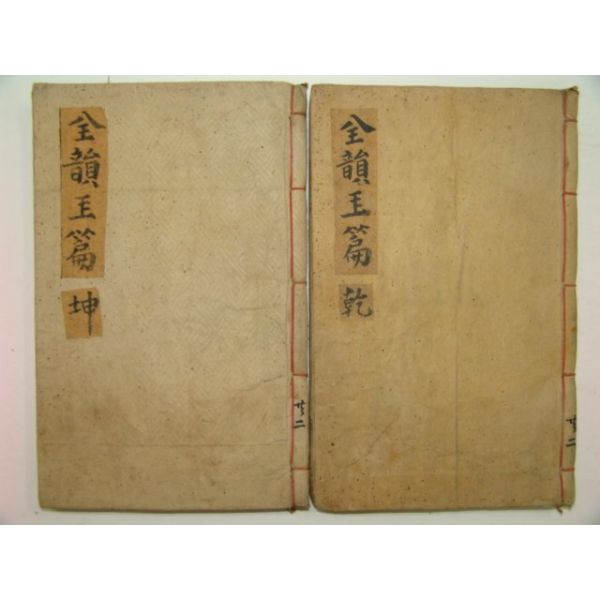 全韻玉篇
乾
共二
全韻玉篇
坤
共二